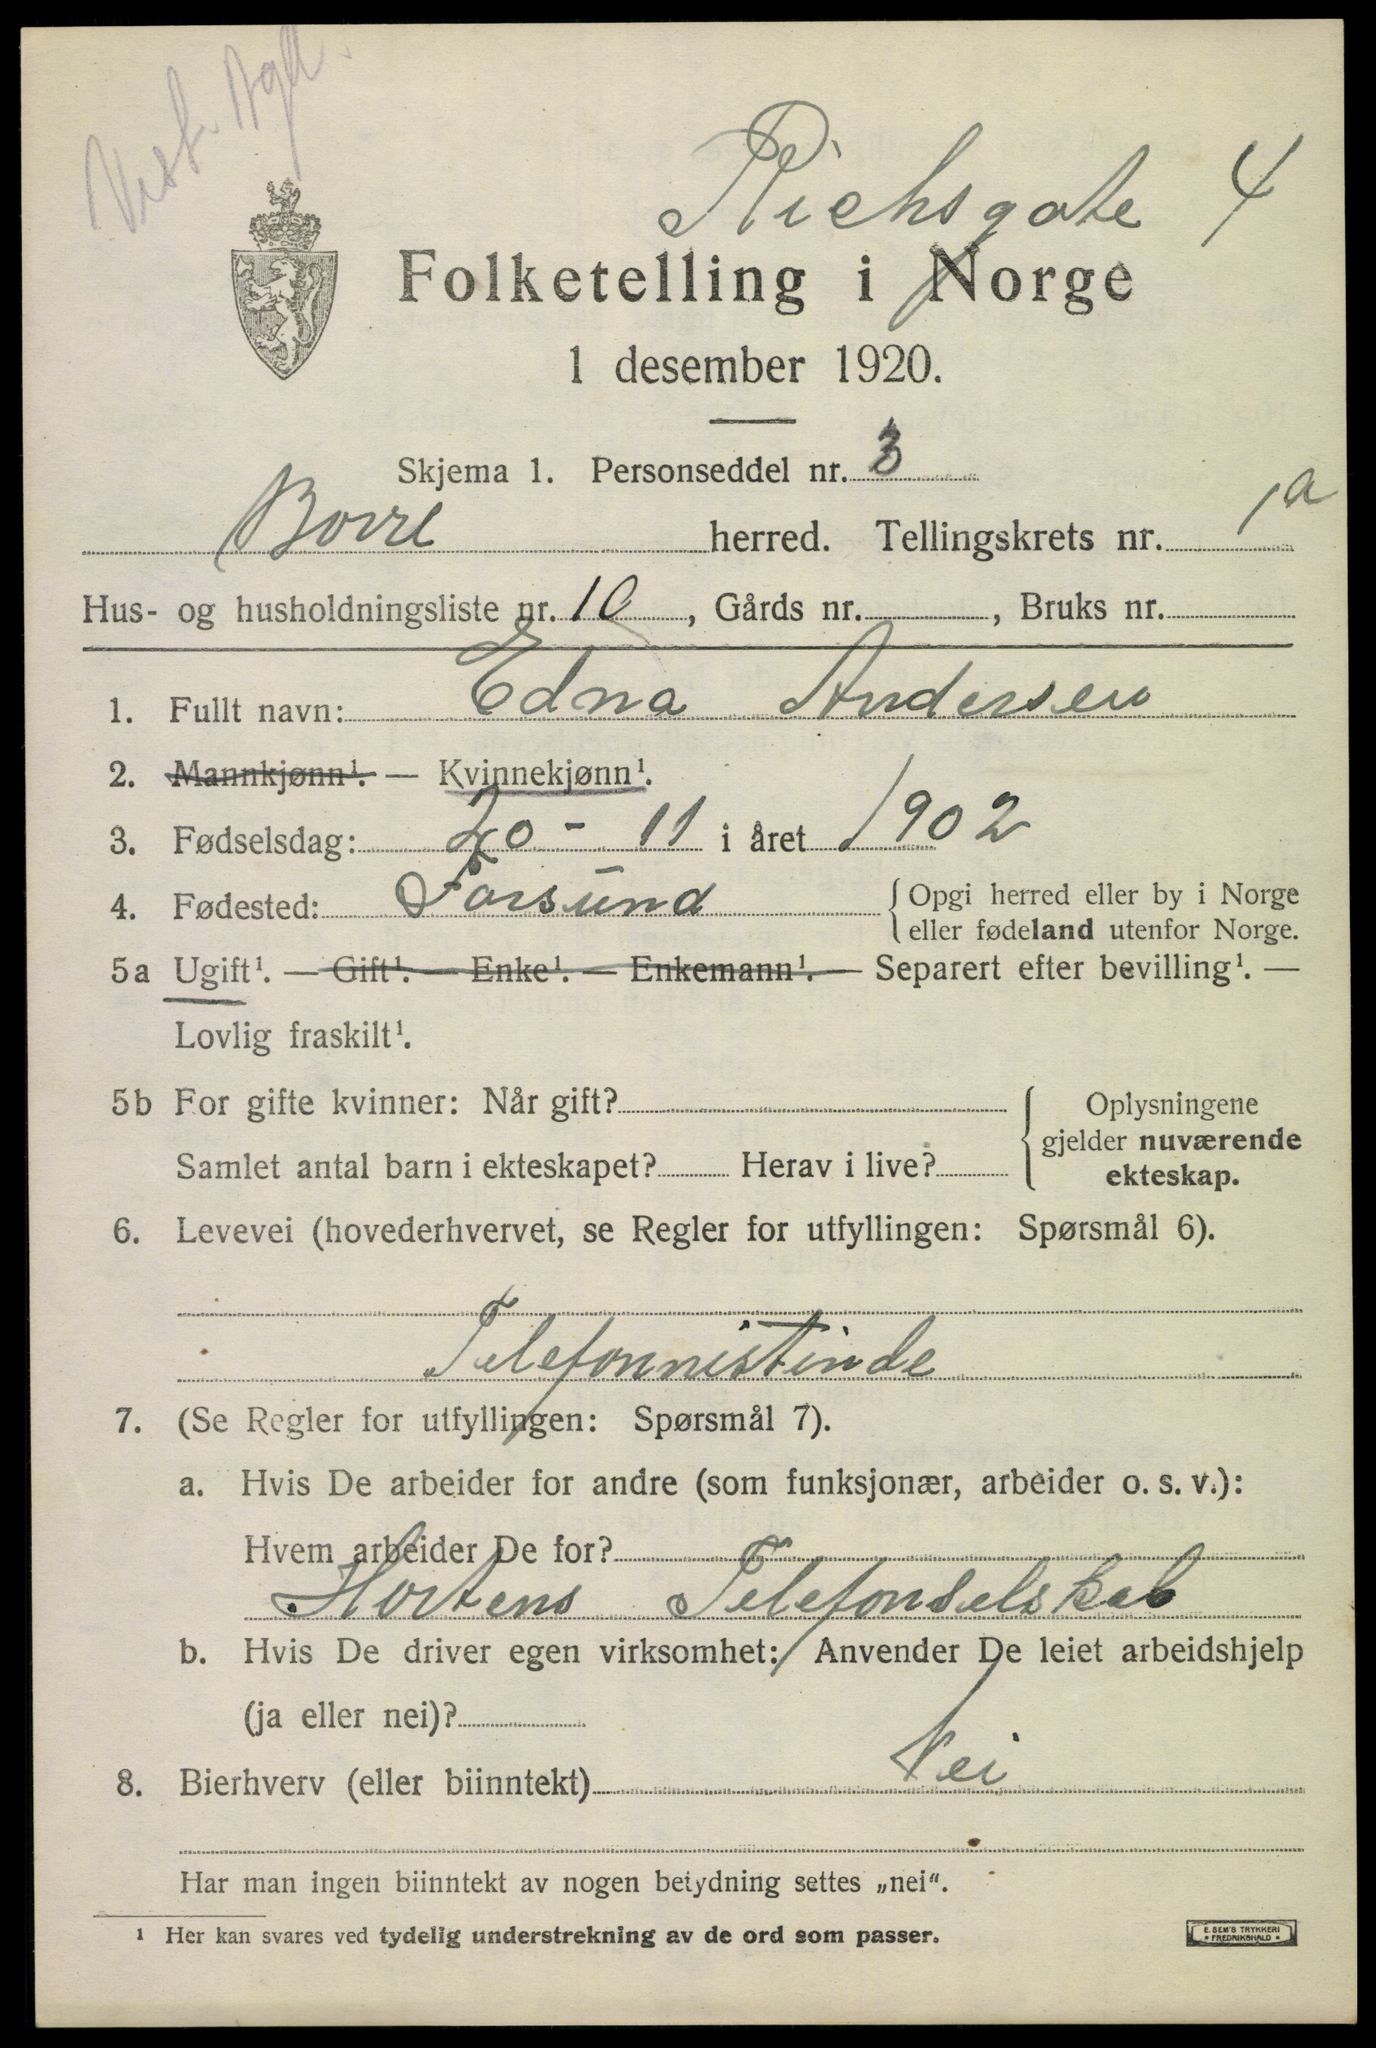 Vest. Agd.
Richsgate 4
Folketelling i Norge
1 desember 1920.
Skjema 1. Personseddel nr. 3
Borre herred. Tellingskrets nr. 1a
Hus- og husholdningsliste nr. 10, Gårds nr. , Bruks nr.
1. Fullt navn: Edna Andersen
2. Mannkjønn¹. — Kvinnekjønn¹.
3. Fødselsdag: 20 - 11 i året 1902
4. Fødested: Farsund { Opgi herred eller by i Norge
eller fødeland utenfor Norge.
5a Ugift¹. — Gift¹. — Enke¹. — Enkemann¹. — Separert efter bevilling¹. —
Lovlig fraskilt¹.
5b For gifte kvinner: Når gift? { Oplysningene
gjelder nuværende
Samlet antal barn i ekteskapet? Herav i live? ekteskap.
6. Levevei (hovederhvervet, se Regler for utfyllingen: Spørsmål 6).
Telefonnistinde
7. (Se Regler for utfyllingen: Spørsmål 7).
a. Hvis De arbeider for andre (som funksjonær, arbeider o. s. v.):
Hvem arbeider De for?
Hortens Telefonselskab
b. Hvis De driver egen virksomhet: Anvender De leiet arbeidshjelp
(ja eller nei)?
8. Bierhverv (eller biinntekt) Nei
Har man ingen biinntekt av nogen betydning settes „nei“.
¹ Her kan svares ved tydelig understrekning av de ord som passer.
E. SEM'S TRYKKERI
* FREDRIKSHALD *